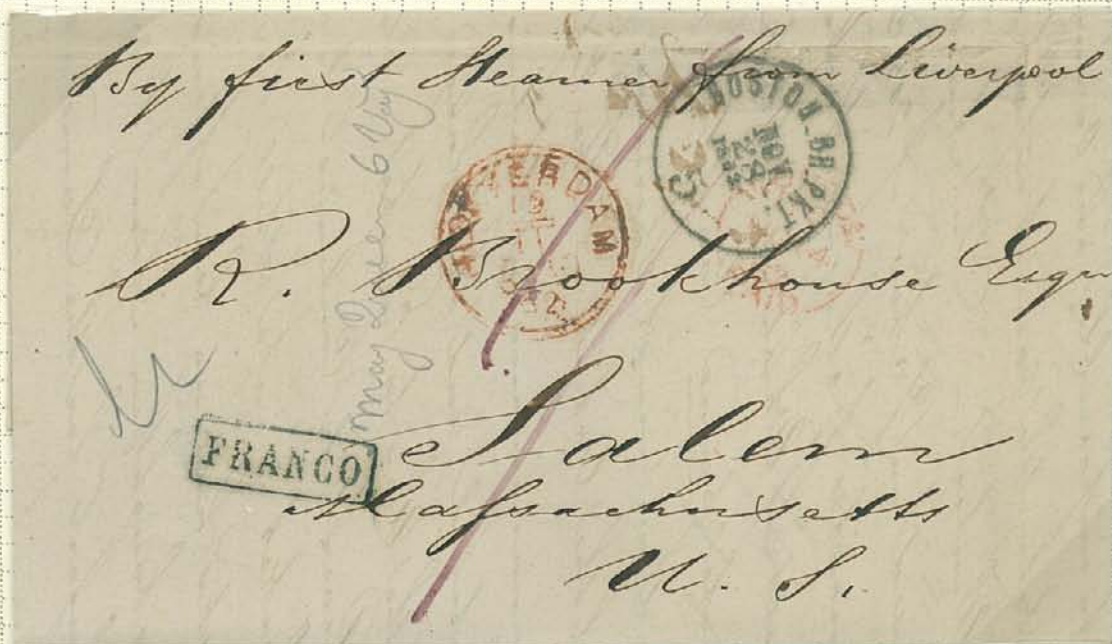 By first Steamer from Liverpool
BOSTON. BR. PKT.
NOV
28
5
ROTTERDAM
19
11
R. Brookhouse Esqr
May Queen 6 Voy
FRANCO
Salem
Massachusetts
U. S.